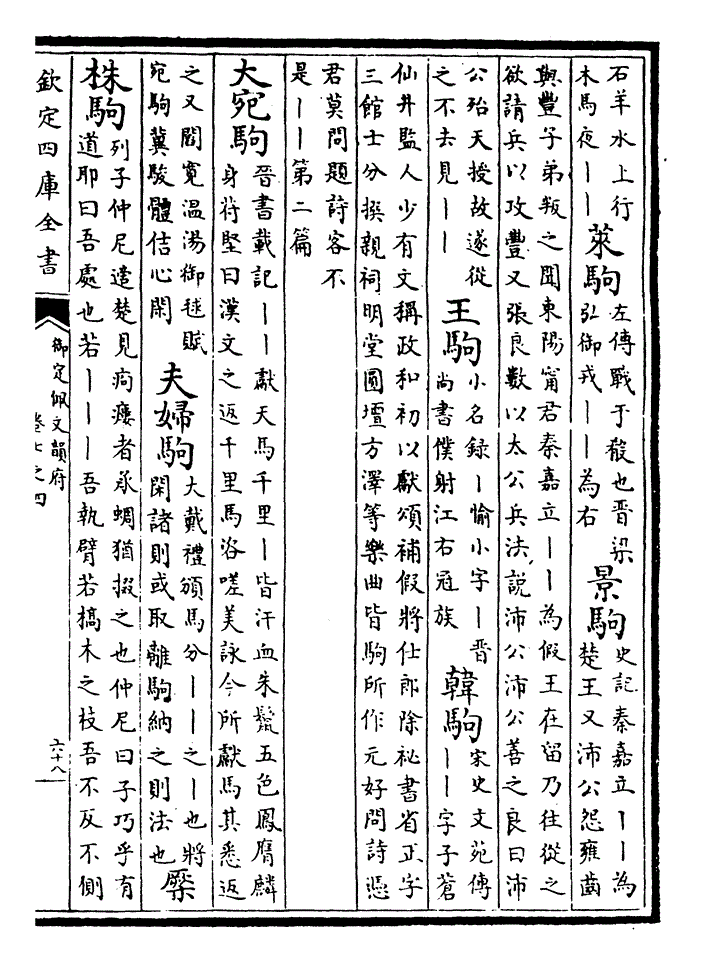 石羊水上行
木馬夜丨丨
萊駒
左傳戰于殽也晉梁
弘御戎丨丨為右
景駒
史記秦嘉立丨丨為
楚王又沛公怨雍齒
與豐子弟叛之聞東陽甯君秦嘉立丨丨為假王在留乃往從之
欲請兵以攻豐又張良數以太公兵法說沛公沛公善之良曰沛
公殆天授故遂從
之不去見丨丨
王駒
小名録丨愉小字丨晉
尚書僕射江右冠族
韓駒
宋史文苑傳
丨丨字子蒼
仙井監人少有文稱政和初以獻頌補假將仕郎除祕書省正字
三館士分撰親祠明堂圓壇方澤等樂曲皆駒所作元好問詩憑
君莫問題詩客不
是丨丨第二篇
大宛駒
晉書載記丨丨獻天馬千里丨皆汗血朱鬛五色鳳膺麟
身苻堅曰漢文之返千里馬洛嗟美詠今所獻馬其悉返
之又閻寛温湯御毬賦
宛駒冀駿體佶心閑
夫婦駒
大戴禮頒馬分丨丨之丨也將
閑諸則或取離駒納之則法也
橜
株駒
列子仲尼遣楚見痀瘻者承蜩猶掇之也仲尼曰子巧乎有
道耶曰吾處也若丨丨丨吾執臂若槁木之枝吾不反不側
欽定四庫全書
御定佩文韻府
卷七之四
六十八